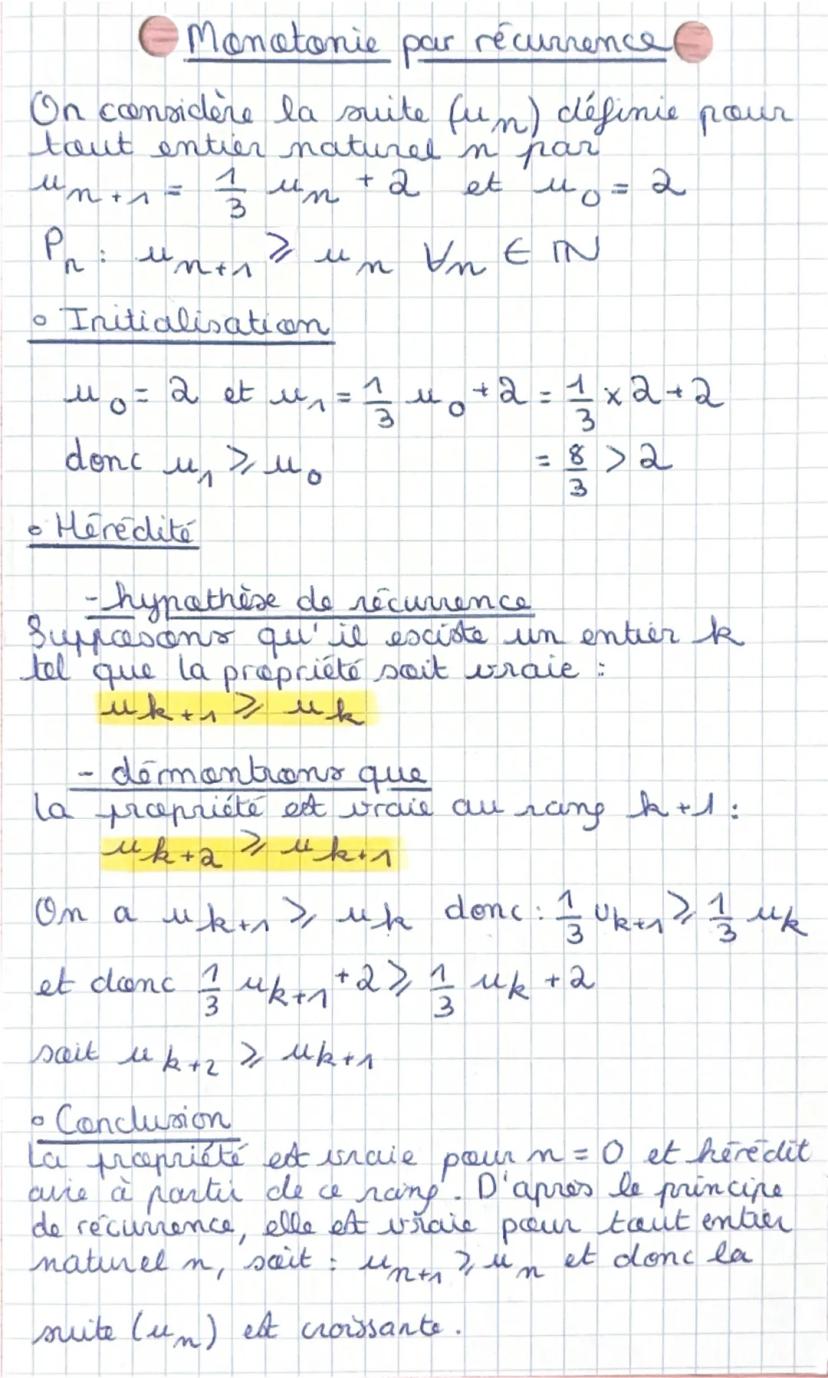 Monotonie par récurrence
On considère la suite (un) définie pour
tout entier naturel n par
un+1 = 1/3 un + 2 et u0 = 2
Pn : un+1 ⩾ un ∀n ∈ ℕ
• Initialisation
u0 = 2 et u1 = 1/3 u0 + 2 = 1/3 × 2 + 2
donc u1 ⩾ u0 = 8/3 > 2
• Hérédité
- hypothèse de récurrence
Supposons qu'il existe un entier k
tel que la propriété soit vraie :
uk+1 ⩾ uk
- démontrons que
la propriété est vraie au rang k+1 :
uk+2 ⩾ uk+1
On a uk+1 ⩾ uk donc : 1/3 uk+1 ⩾ 1/3 uk
et donc 1/3 uk+1 + 2 ⩾ 1/3 uk + 2
soit uk+2 ⩾ uk+1
• Conclusion
La propriété est vraie pour n = 0 et hérédit
aire à partir de ce rang. D'après le principe
de récurrence, elle est vraie pour tout entier
naturel n, soit : un+1 ⩾ un et donc la
suite (un) est croissante.